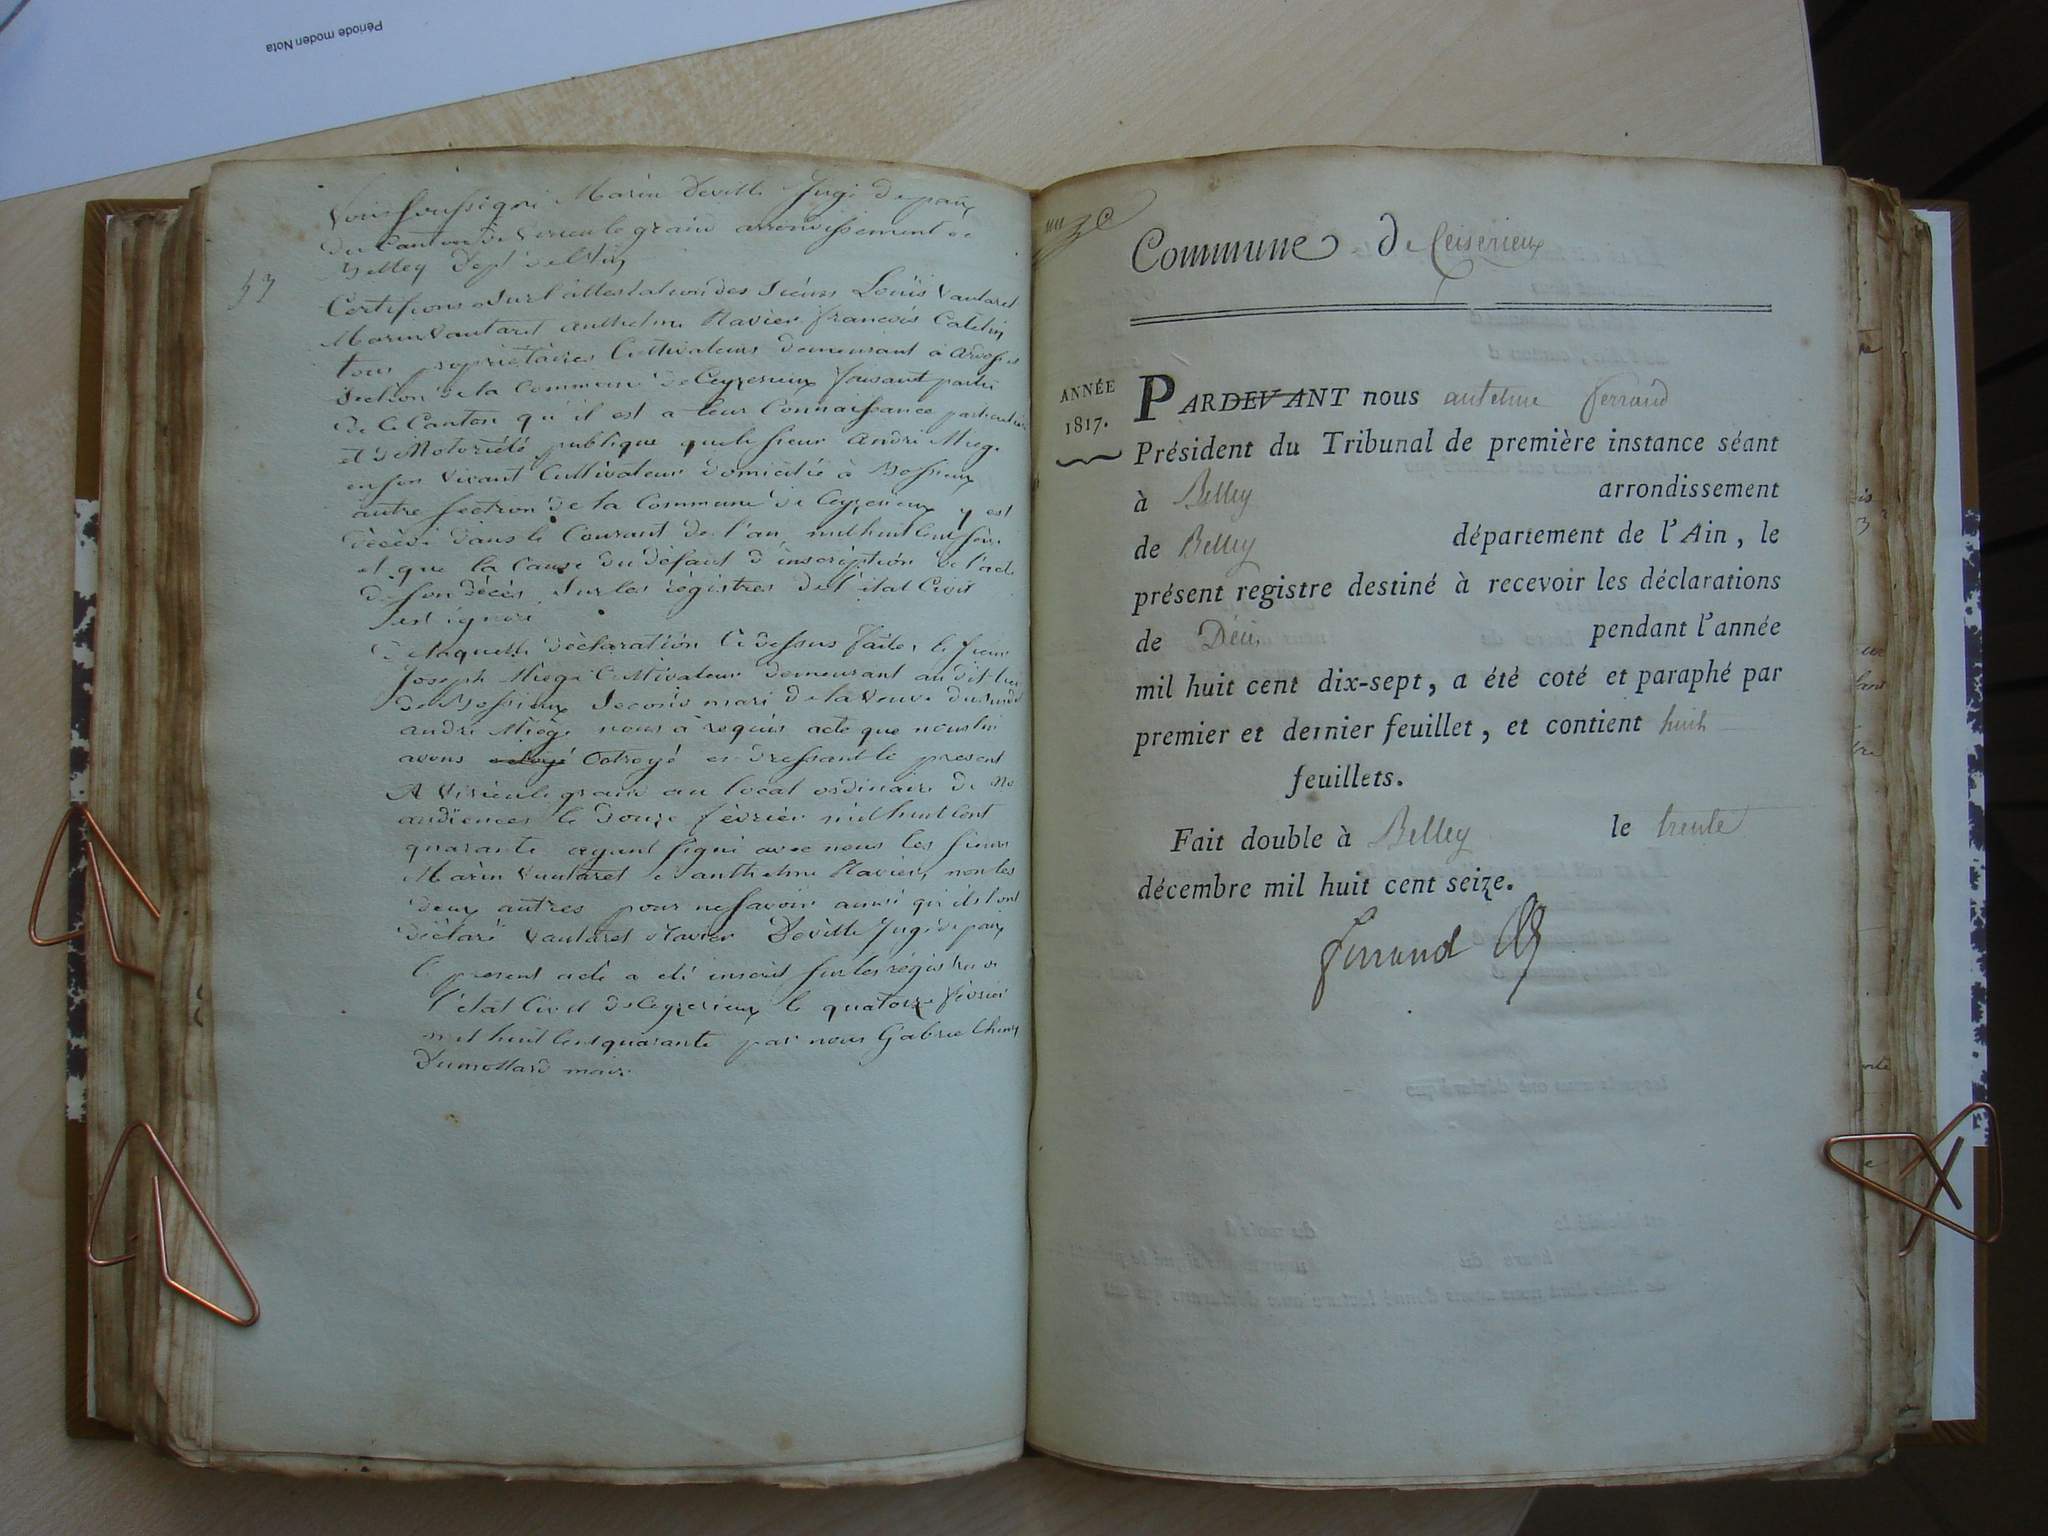 Période moden Nota
53
Nous soussigné Marin Deville Juge de paix
du Canton de Virieu le grand arrondissement de
Belley Dept de l'Ain
Certifions sur l'attestation des Sieurs Louis Vautaret
Marin Vautaret anthelme Ravier françois
tous propriétaires Cultivateurs demeurant à
Section de la Commune de Ceyzerieux faisant partie
de le Canton qu'il est a leur Connaissance particulière
et de Notoriété publique que le sieur André Miege
en son vivant Cultivateur domicilié à Bossieux
autre section de la Commune de Ceyzerieux y est
décédé dans le Courant de l'an mil huit cent
et que la Cause du défaut d'inscription de l'acte
de son décès sur les régistres de l'état Civil
est ignoré
de laquelle déclaration Cidessus faite, le sieur
Joseph Miege Cultivateur demeurant au dit lieu
de Bossieux second mari de la Veuve du
andré Miege nous à requis acte que nous lui
avons Octroyé en dressant le present
A Virieu le grand au local ordinaire de nos
audiences le douze fevrier mil huit Cent
quarante ayant signé avec nous les sieurs
Marin Vautaret et anthelme Ravier, non les
deux autres pour ne savoir ainsi qu'ils l'ont
déclaré Vautaret Ravier Deville Juge de paix
le present acte a été inscrit sur les régistres de
l'état Civil de Ceyzerieux le quatorze février
mil huit Cent quarante par nous Gabriel
Dumollard maire
onze
Commune de Ceiserieux
ANNÉE
1817.
PARDEVANT nous antelme Ferrand
Président du Tribunal de première instance séant
à Belley arrondissement
de Belley département de l'Ain, le
présent registre destiné à recevoir les déclarations
de Décès pendant l'année
mil huit cent dix-sept, a été coté et paraphé par
premier et dernier feuillet, et contient huit
feuillets.
Fait double à Belley le trente
décembre mil huit cent seize.
Ferrand